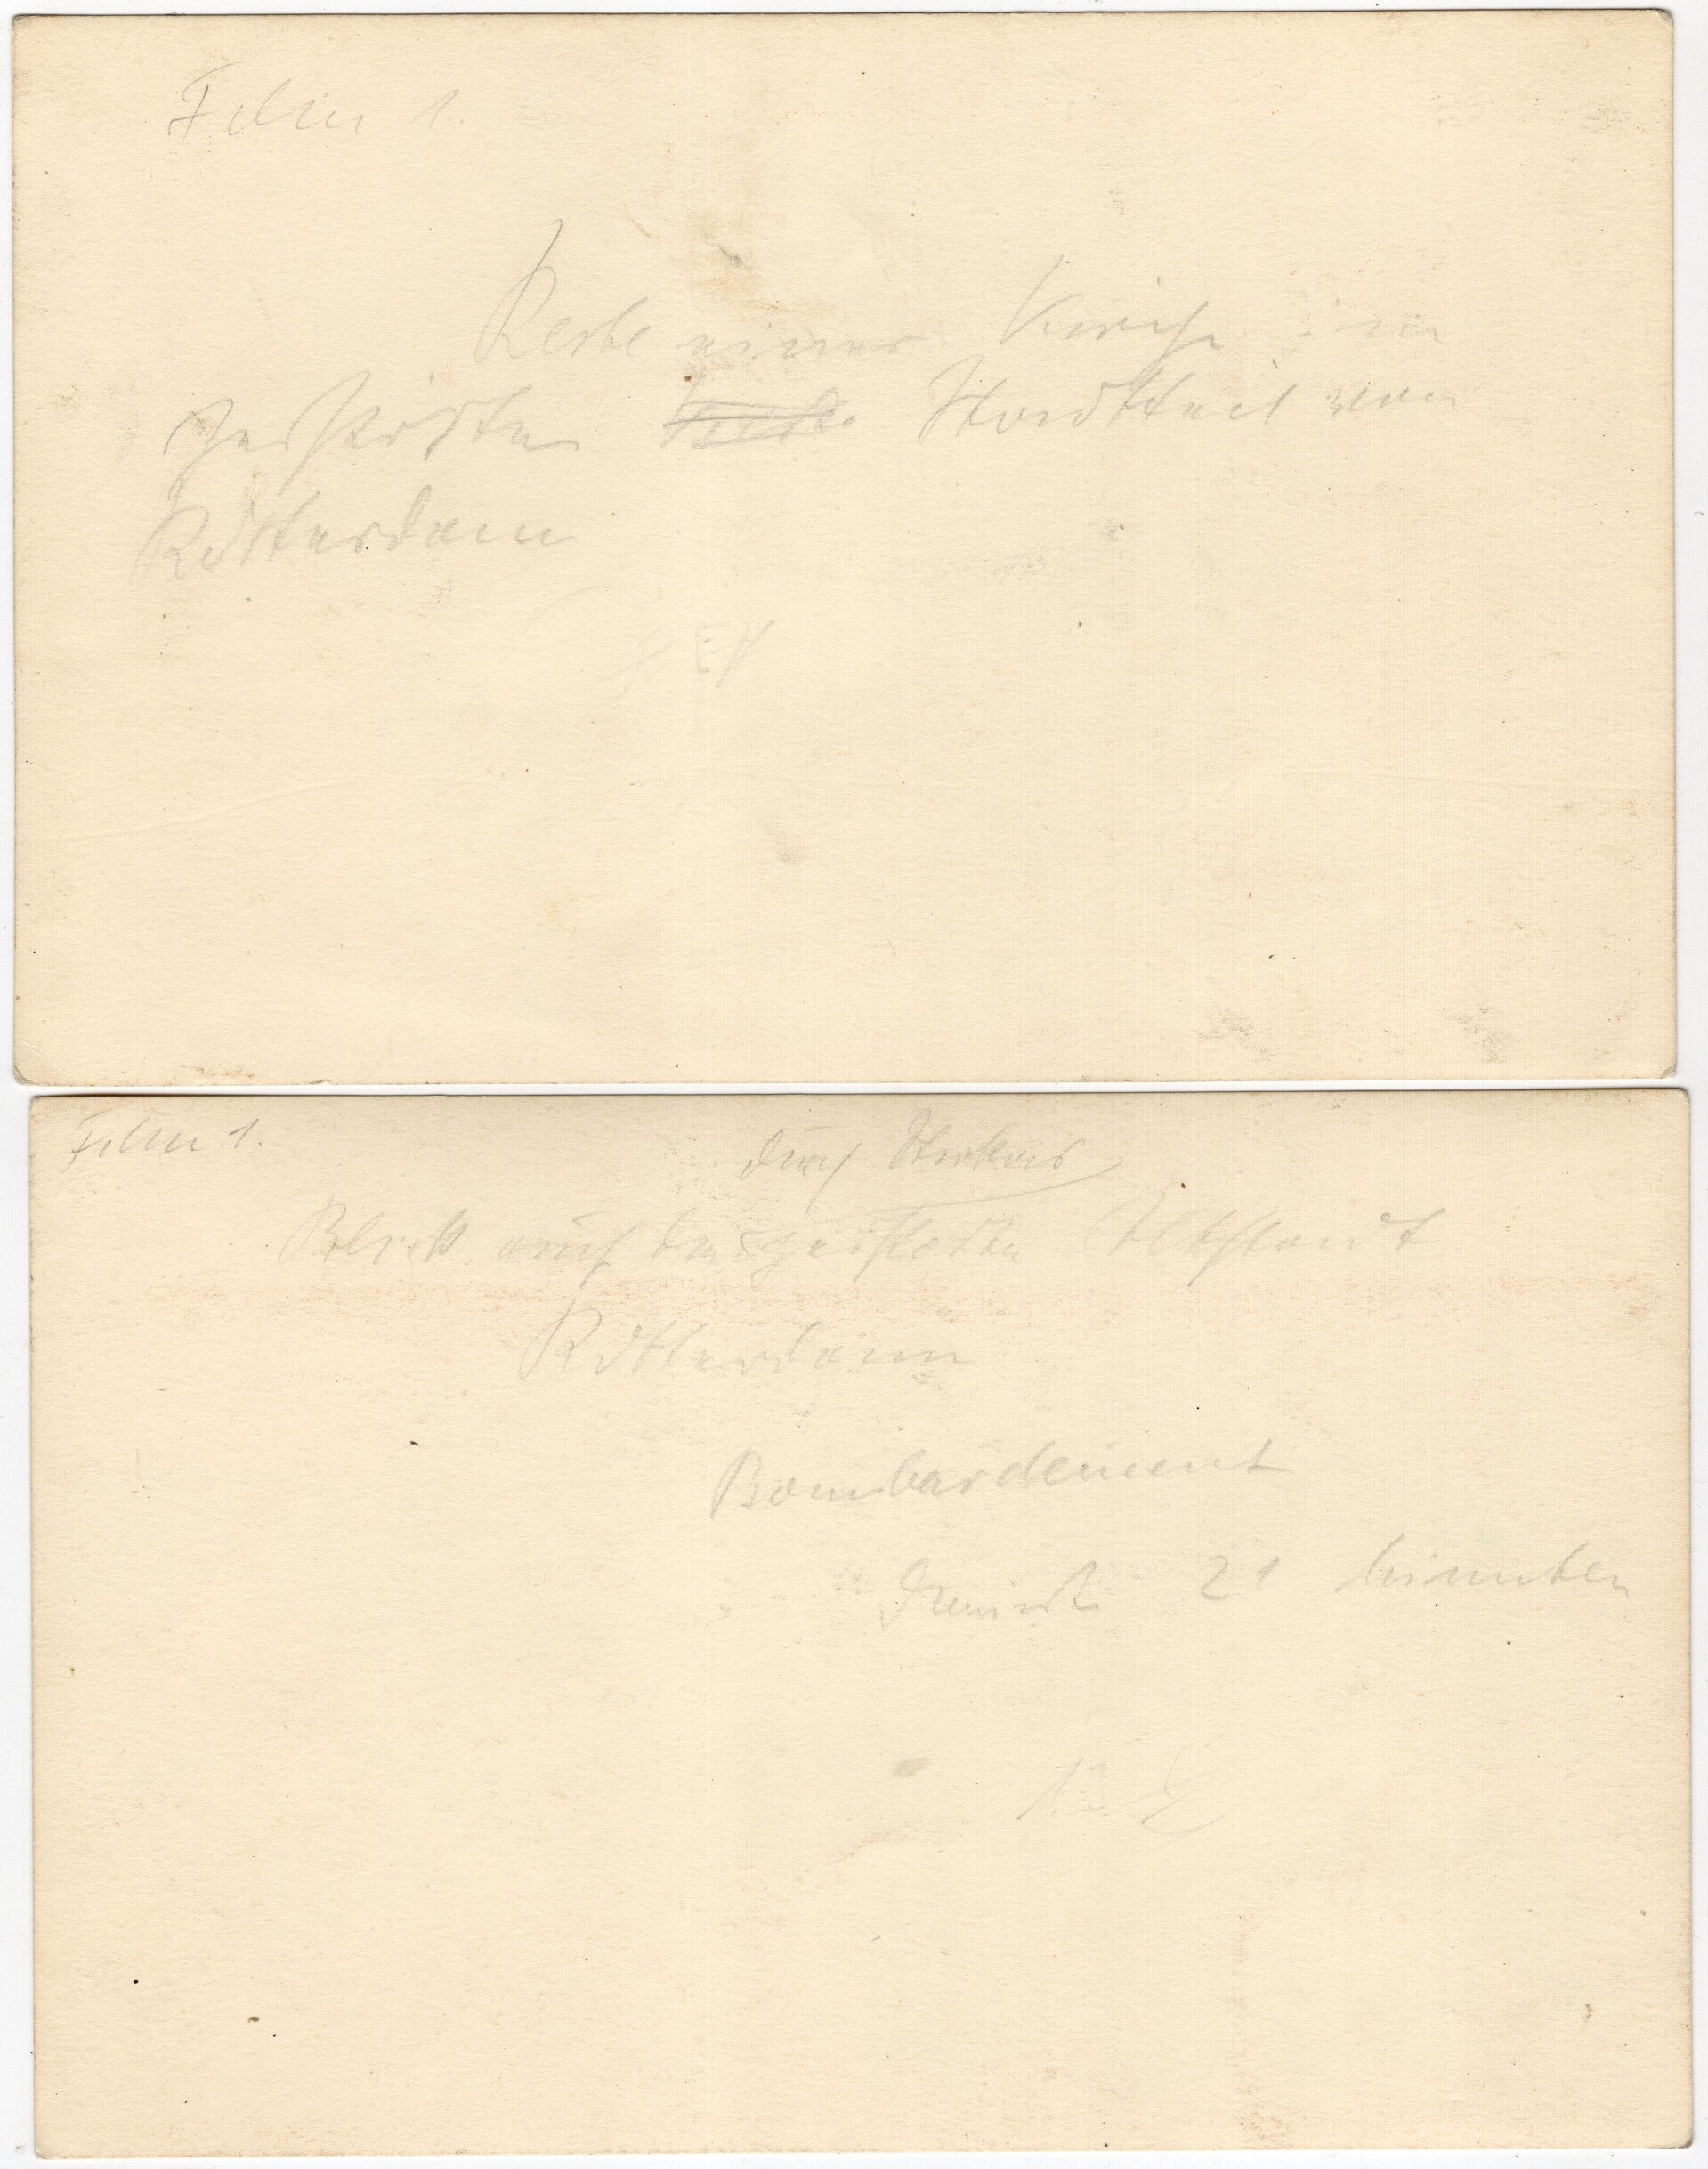 Film 1.
Reste einer Kirche im
zerstörten Stadtteil von
Rotterdam
Film 1.
durch Stukas
Blick auf die zerstörte Altstadt
Rotterdam
Bombardement
dauerte 21 Minuten